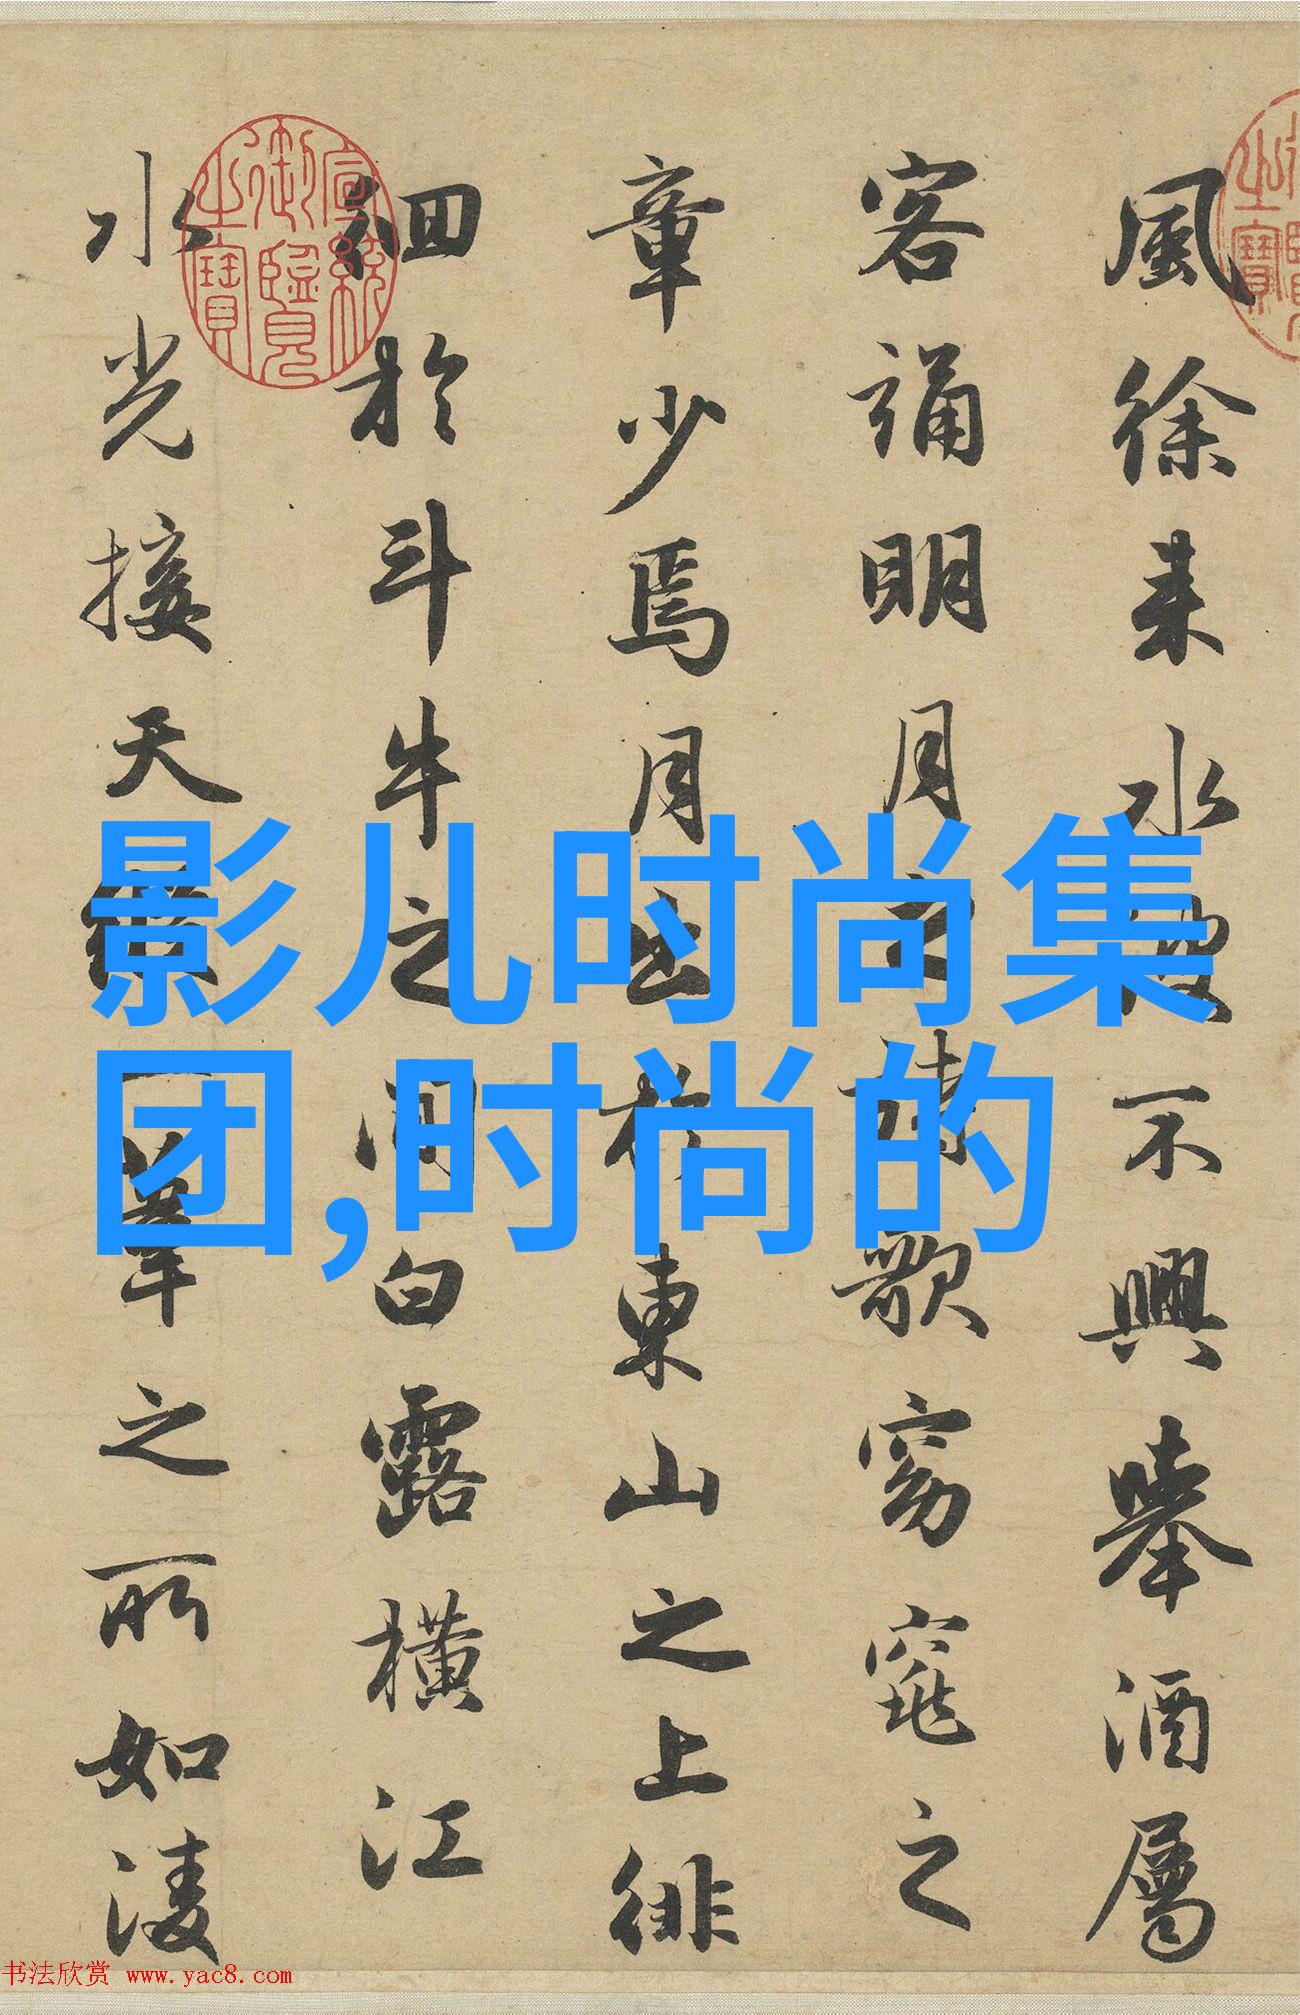 風徐来水波不興舉酒屬
客誦明月之詩歌窈窕之
章少焉月出於東山之上徘
徊於斗牛之間白露橫江
水光接天縱一葦之所如凌
宣統御覽之寶
影儿时尚集
团,时尚的
书法欣赏 www.yac8.com